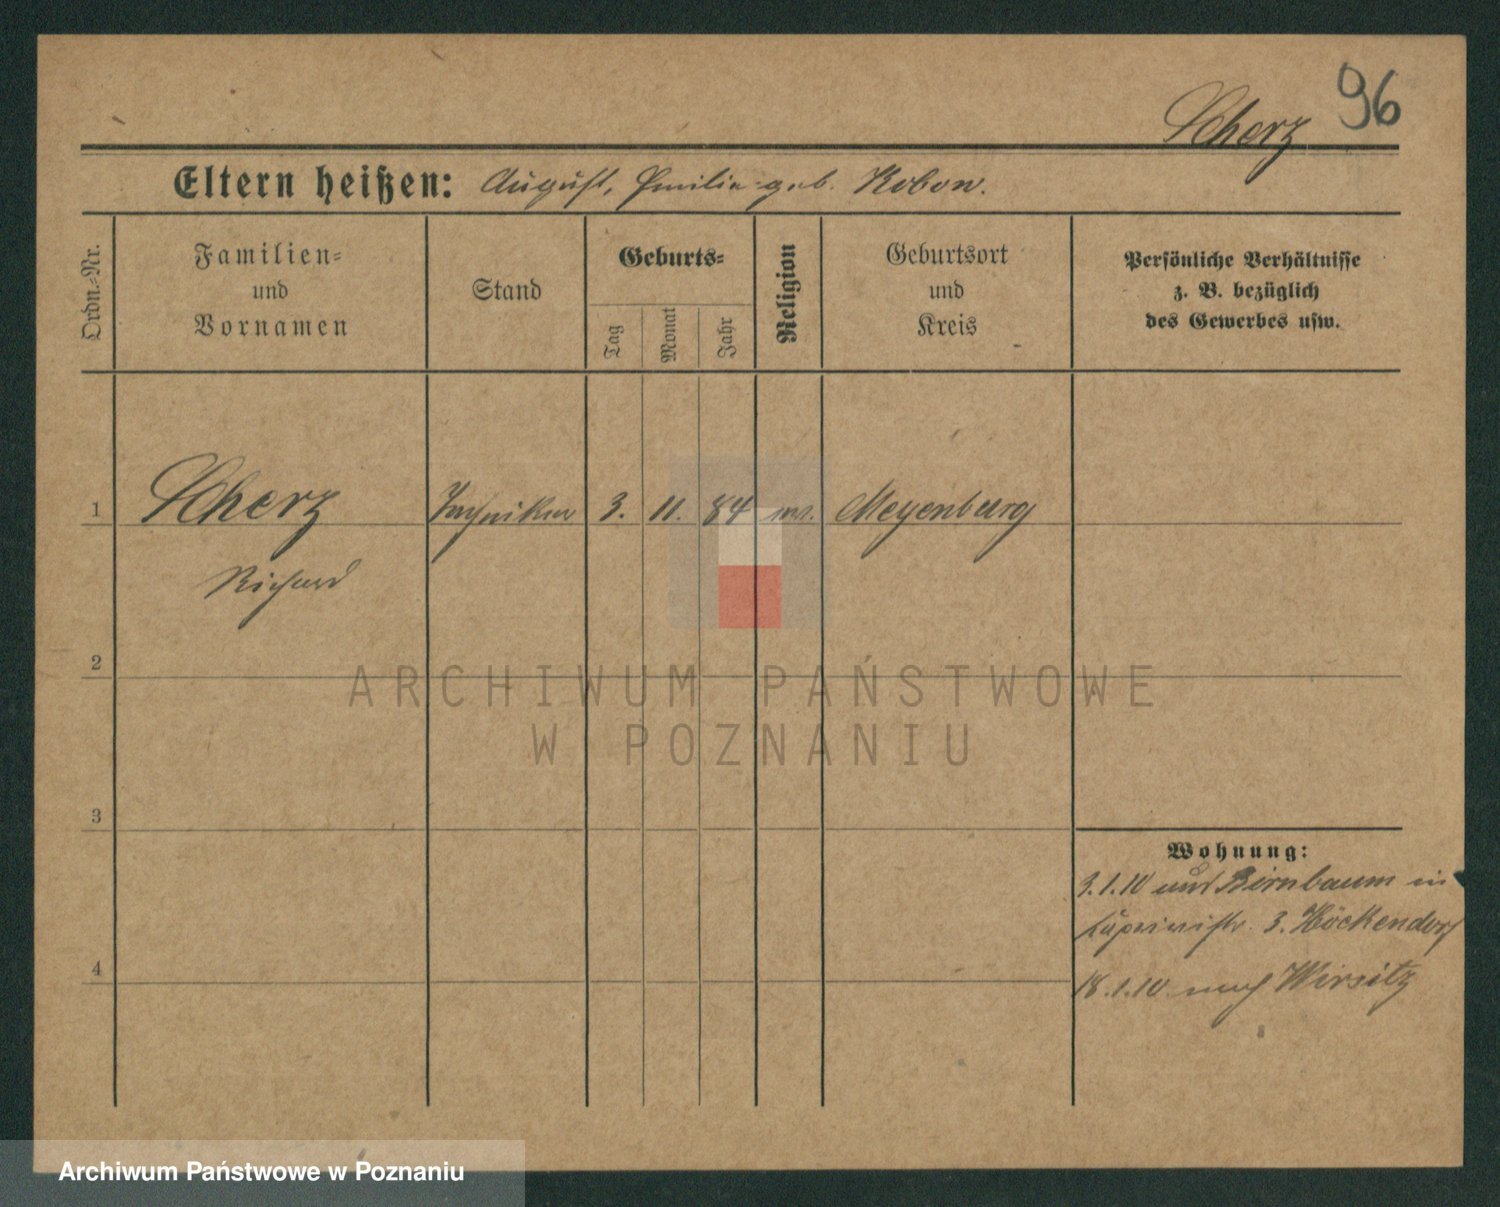 96
Scherz
Eltern heißen: August, Emilie geb. Kobow.
Ordn.-Nr.
Familien-
und
Vornamen
Stand
Geburts-
Tag
Monat
Jahr
Religion
Geburtsort
und
Kreis
Persönliche Verhältnisse
z. B. bezüglich
des Gewerbes usw.
1 Scherz Techniker 3. 11. 84 ev. Meyenburg
Richard
2
3
4
Wohnung:
3.1.10 Birnbaum in
3. Höckendorf
18.1.10 nach Wirsitz
ARCHIWUM PAŃSTWOWE
W POZNANIU
Archiwum Państwowe w Poznaniu